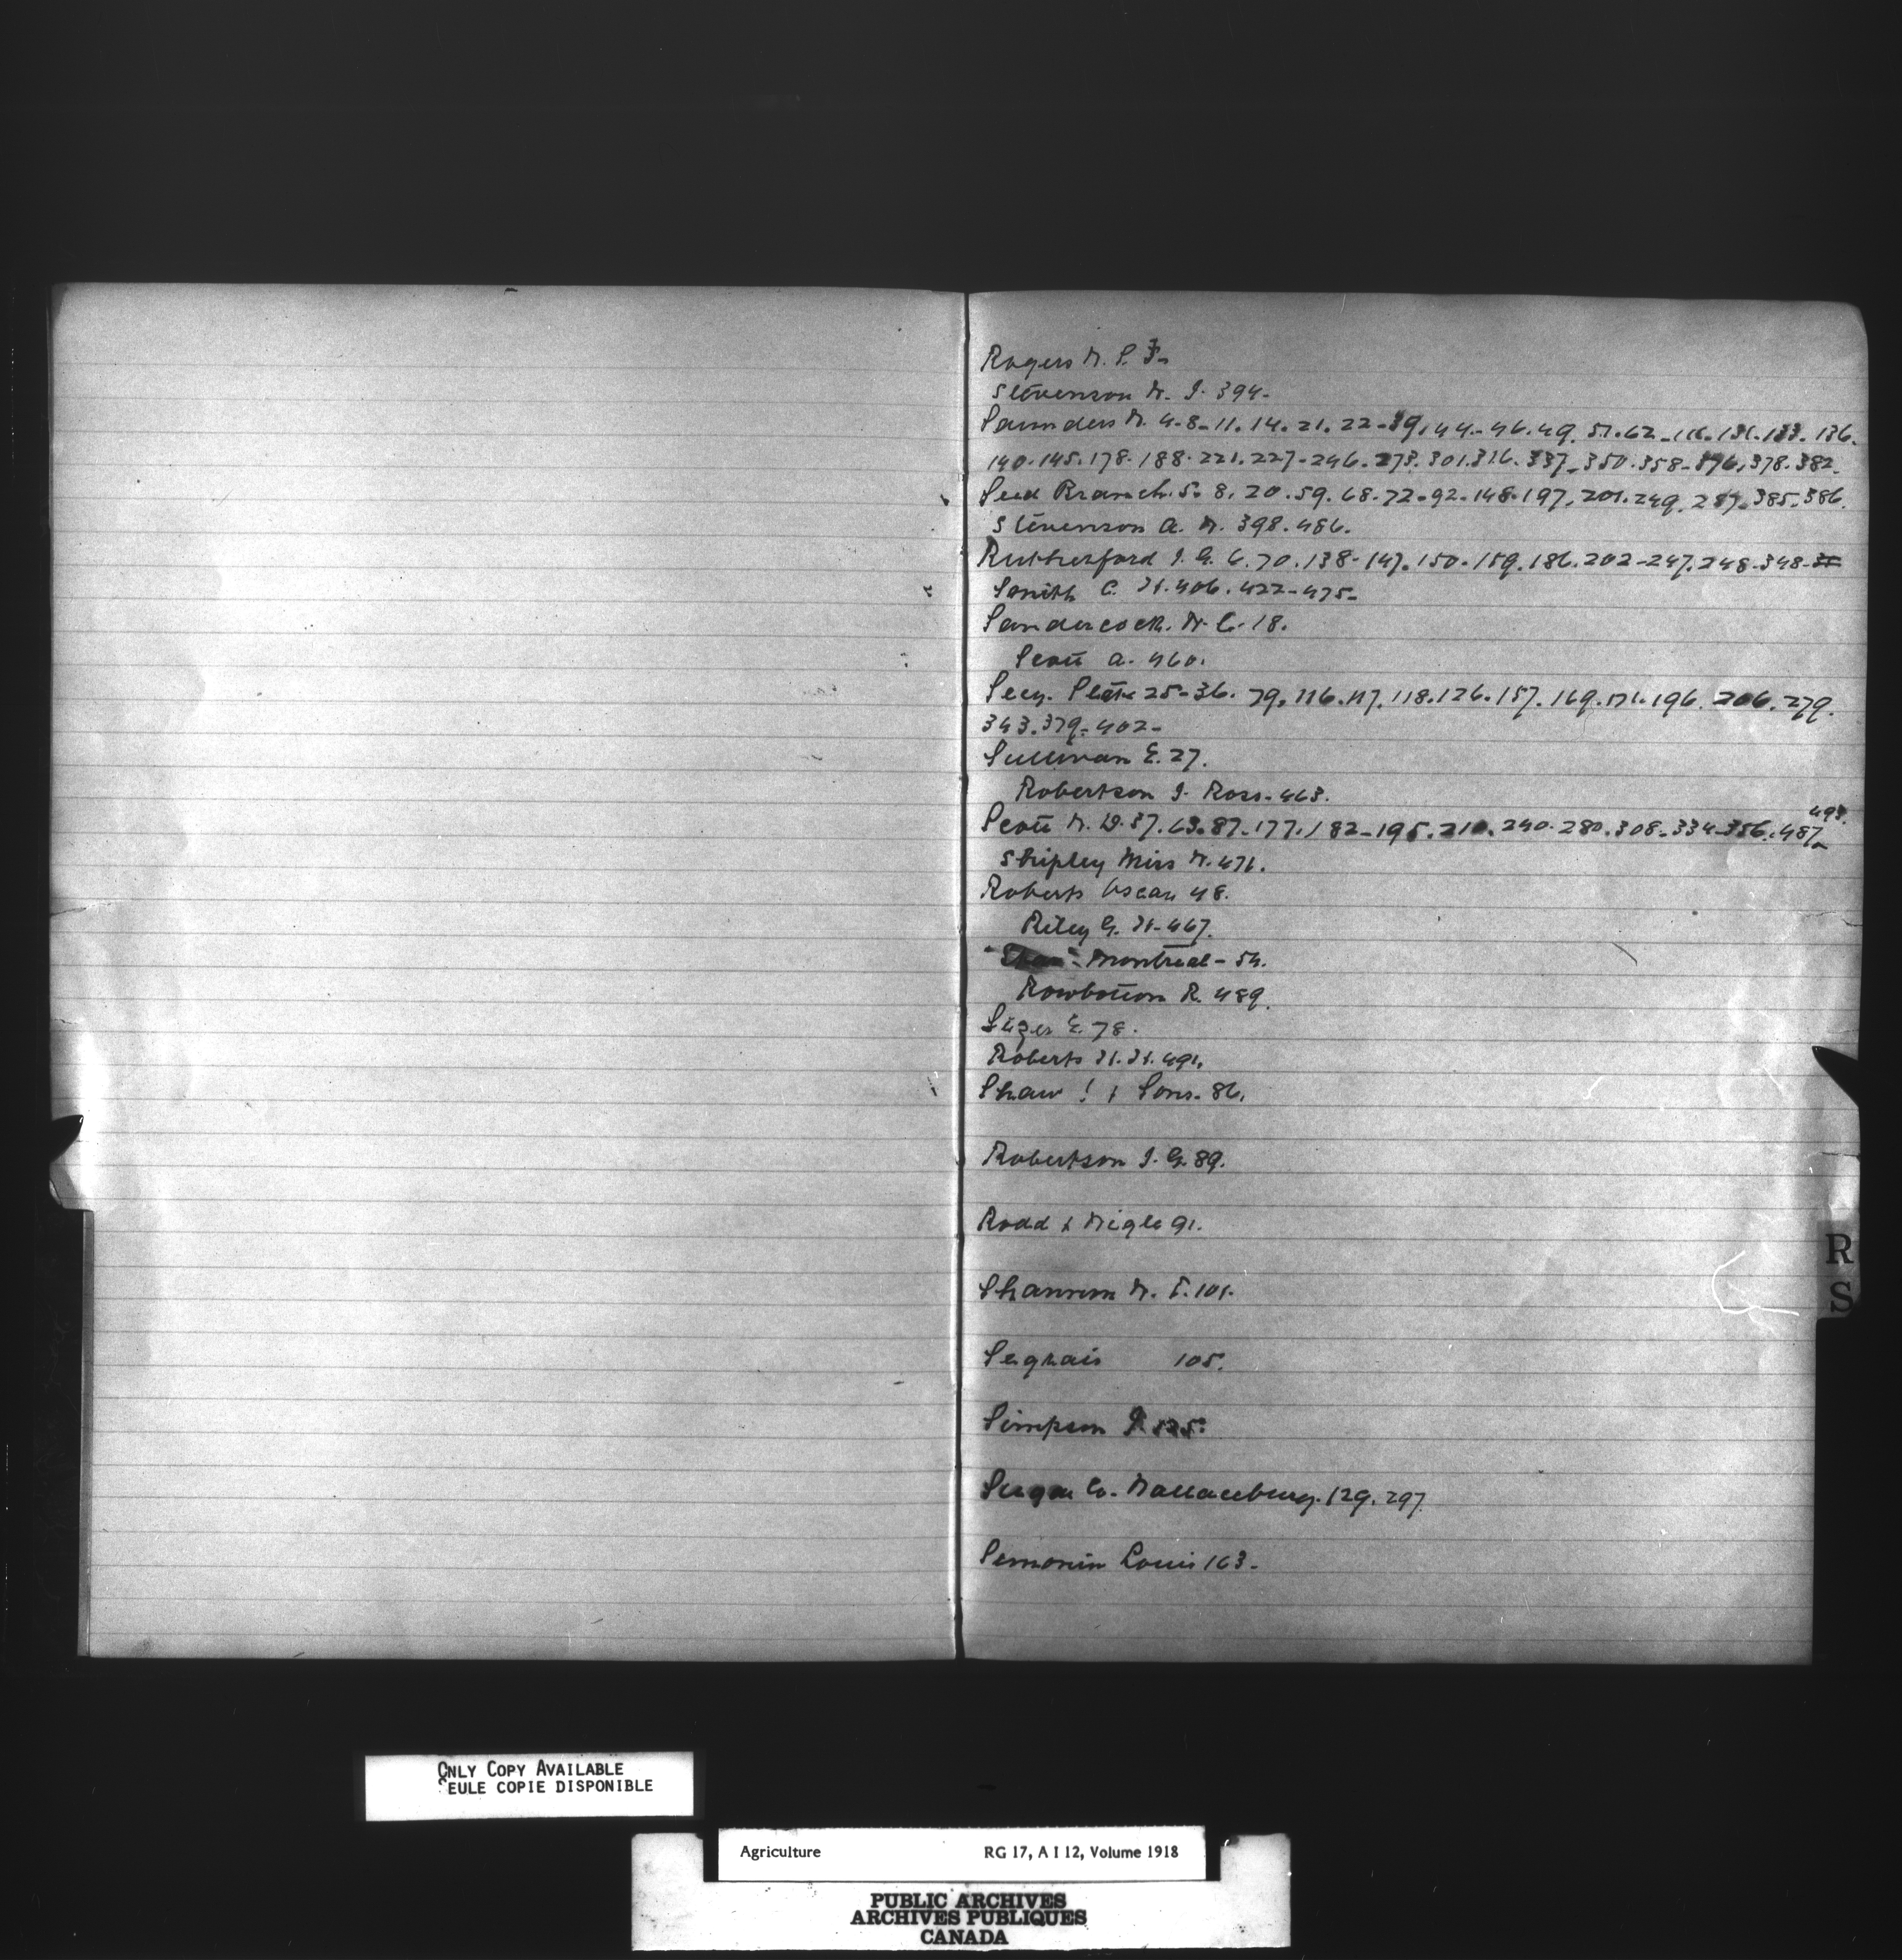 Rogers W. P. 3-
Stevenson W. J. 394-
Saunders W. 4-8-11. 14. 21. 22-39. 44-46. 49. 51. 62-116. 131. 133. 136.
140. 145. 178. 188. 221. 227-246. 273. 301. 316. 337-350. 358-376. 378. 382.
Seed Branch. 5. 8. 20. 59. 68. 72-92. 148. 197. 201. 249. 287. 385. 386.
Stevenson A. W. 398. 486.
Rutherford J. G. 6. 70. 138. 147. 150. 159. 186. 202-247. 248. 348-
Smith C. H. 406. 422-475-
Sandercock. W. C. 18.
Scott A. 460.
Secy. State 25-36. 79. 116. 117. 118. 126. 157. 169. 171. 196. 206. 279.
343. 379-402-
Sullivan E. 27.
Robertson J. Ross. 463.
493.
Scott W. D. 37. 63. 87-177. 182-195. 210. 240. 280. 308-334-356. 487
Shipley Miss W. 471.
Roberts Oscar 48.
Riley G. H. 467.
"Star" Montreal - 54.
Rowbottom R. 489.
E. 78.
Roberts H. H. 491.
Shaw ! & Sons. 86.
Robertson J. G. 89.
Rodd & Wigle 91.
Shannon W. T. 101.
Segrais 105.
Simpson J. 125.
Sugar Co. Wallaceburg. 129. 297.
Semonin Louis 163-
R
S
ONLY COPY AVAILABLE
SEULE COPIE DISPONIBLE
Agriculture RG 17, A I 12, Volume 1918
PUBLIC ARCHIVES
ARCHIVES PUBLIQUES
CANADA